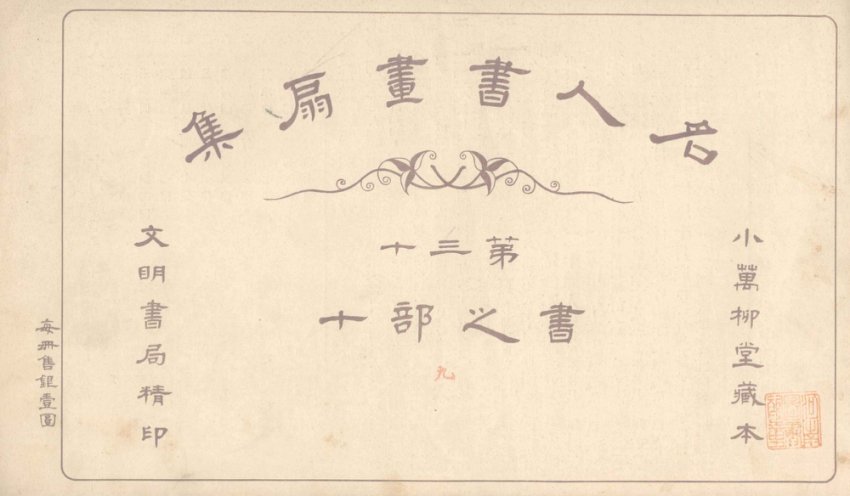 名人書畫扇集
第三十
書之部十
九
小萬柳堂藏本
文明書局精印
每冊售銀壹圓